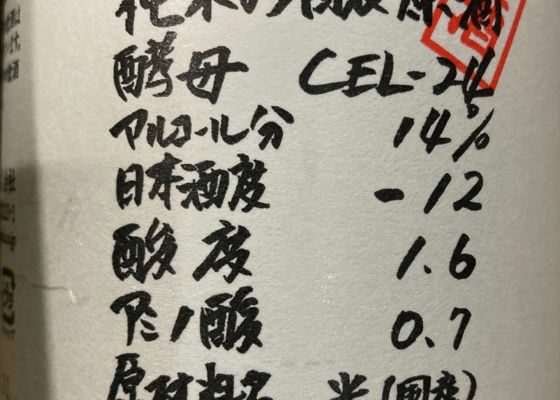 酵母 CEL-24
アルコール分 14%
日本酒度 -12
酸度 1.6
アミノ酸 0.7
原材料名 米(国産)